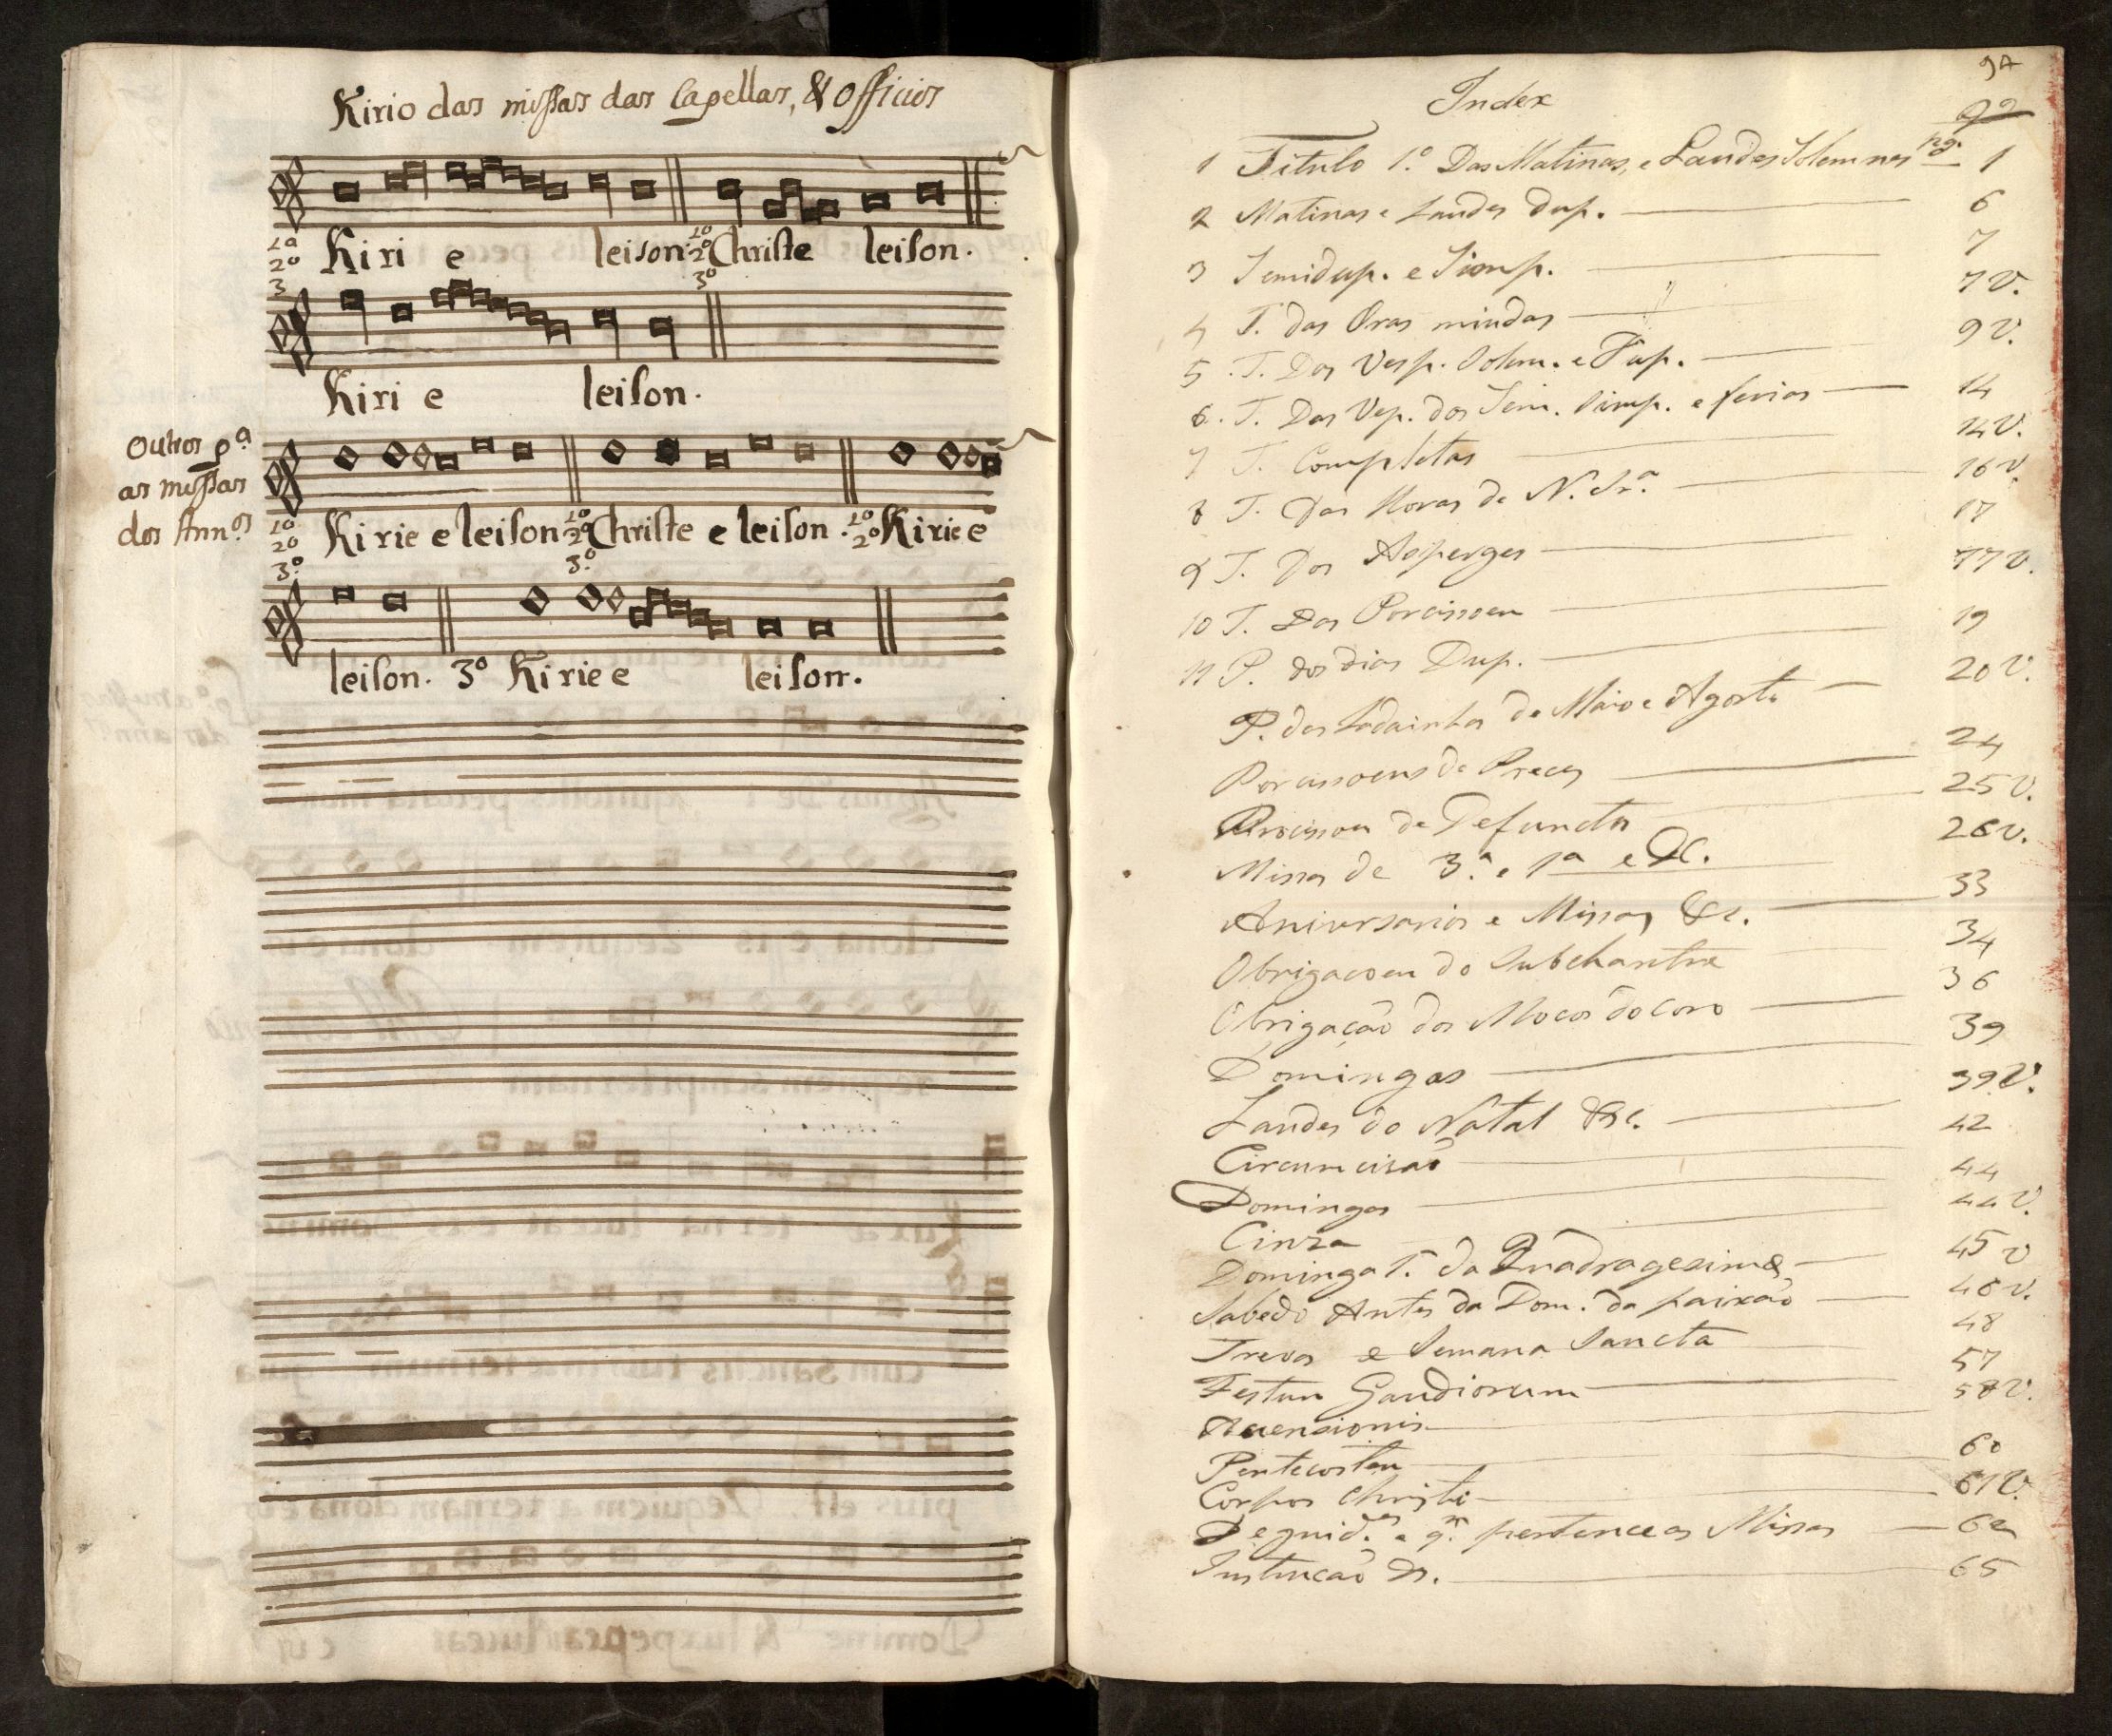 Kirio das missas das Capellas, & officios
1º 2º 3 Kiri e leison. 1º 2º 3º Christe leison.
Kiri e leison.
Outros pª
as missas
dos Ann.os
1º 2º 3º Kirie e leison 1º 2º 3º Christe e leison. 1º 2º Kirie e
leison. 3º Kirie e leison.
Index
1 Titulo 1.º Das Matinas, e Laudes Solemnes pg. 1
2 Matinas e Laudes Dup. 6
3 Semidup. e Simp. 7
4 T. das Oras miudas 7 v.
5 T. Das Vesp. Solem. e Dup. 9 v.
6. T. Das Vep. dos Sem. Simp. e ferias 14
7 T. Completas 14 v.
8 T. Das Horas de N. Sr.ª 16 v.
9 T. Dos Asperges 17
10 T. Das Porcissoens 17 v.
11 P. dos dias Dup. 19
P. das Ladainhas de Maio e Agosto 20 v.
Porcissoens de Preces 24
Procissoen de Defunctos 25 v.
Missa de 3.ª e 1ª e &c. 26 v.
Aniversarios e Missas &c. 33
Obrigacoen do Subchantre 34
Obrigação dos Mocos do Coro 36
Domingas 39
Laudes do Natal &c. 39 v.
Circumcisaõ 42
Domingas 44
Cinza 44 v.
Dominga 1.ª da Quadragesima 45 v
Sabedo Antes da Dom. da paixaõ 46 v.
Trevas e Semana Sancta 48
Festum Gaudiorum 57
Ascensionis 58 v.
Pentecosten 60
Corpos Christi 61 v.
e q.m pertence as Missas 62
&. 65